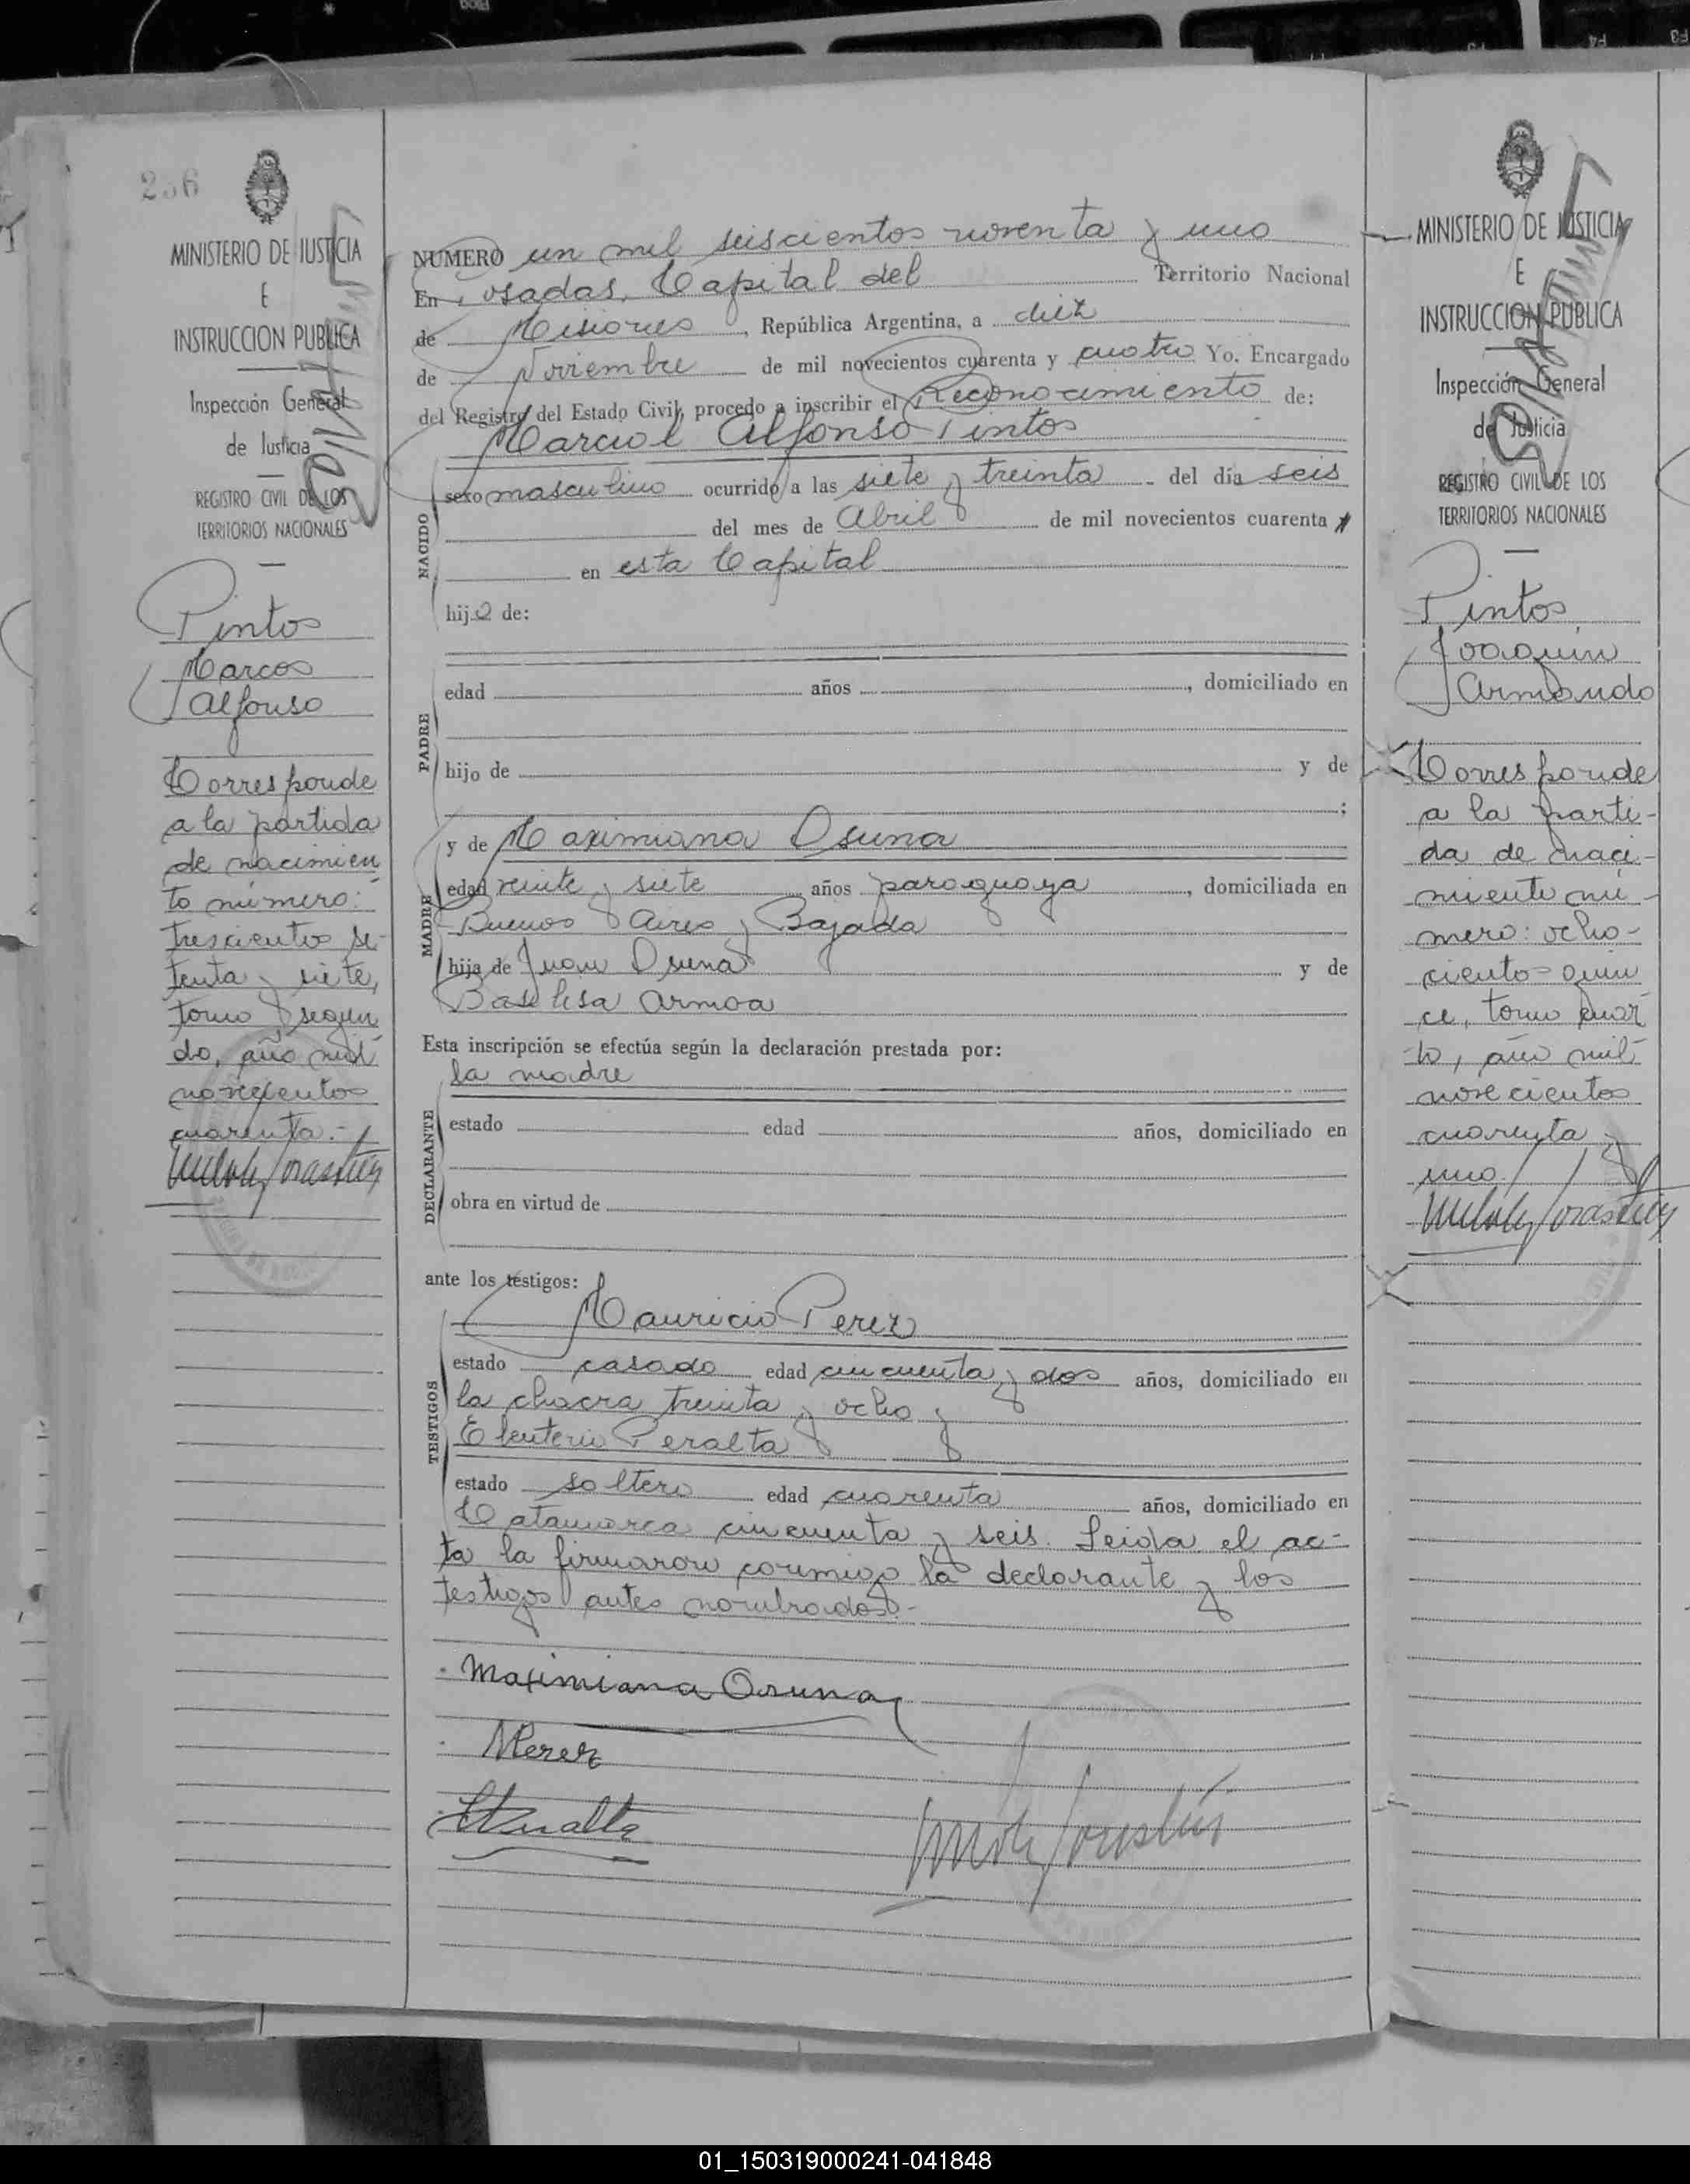 256
MINISTERIO DE JUSTICIA
E
INSTRUCCION PUBLICA
Inspección General
de Justicia
REGISTRO CIVIL DE LOS
TERRITORIOS NACIONALES
Pintos
Marcos
Alfonso
Corresponde
a la partida
de nacimien
to número:
trescientos se-
tenta y siete,
tomo segun
do, año mil
novecientos
cuarenta.-
NUMERO un mil seiscientos noventa y uno
En Posadas, Capital del Territorio Nacional
de Misiones, República Argentina, a diez
de Noviembre de mil novecientos cuarenta y cuatro Yo. Encargado
del Registro del Estado Civil, procedo a inscribir el Reconocimiento de:
Marcial Alfonso Pintos
NACIDO
sexo masculino ocurrido a las siete y treinta del día seis
del mes de Abril de mil novecientos cuarenta
en esta Capital
hijo de:
PADRE
edad años , domiciliado en
hijo de y de
;
MADRE
y de Maximiana Osuna
edad veinte y siete años paraguaya, domiciliada en
Buenos Aires y Bajada
hija de Juan Osuna y de
Basilisa Armoa
Esta inscripción se efectúa según la declaración prestada por:
la madre
DECLARANTE
estado edad años, domiciliado en
obra en virtud de
ante los testigos:
TESTIGOS
Mauricio Perez
estado casado edad cincuenta y dos años, domiciliado en
la chacra treinta y ocho y
Eleuterio Peralta
estado soltero edad cuarenta años, domiciliado en
Catamarca cincuenta y seis. Leida el ac-
ta la firmaron conmigo la declarante y los
testigos antes nombrados.-
Maximiana Osuna
MPerez
EPeralta
MINISTERIO DE JUSTICIA
E
INSTRUCCION PUBLICA
Inspección General
de Justicia
REGISTRO CIVIL DE LOS
TERRITORIOS NACIONALES
Pintos
Joaquin
Armando
Corresponde
a la parti-
da de naci-
miento nú-
mero: ocho-
cientos quin
ce, tomo cuar
to, año mil
novecientos
cuarenta y
uno.
01_150319000241-041848